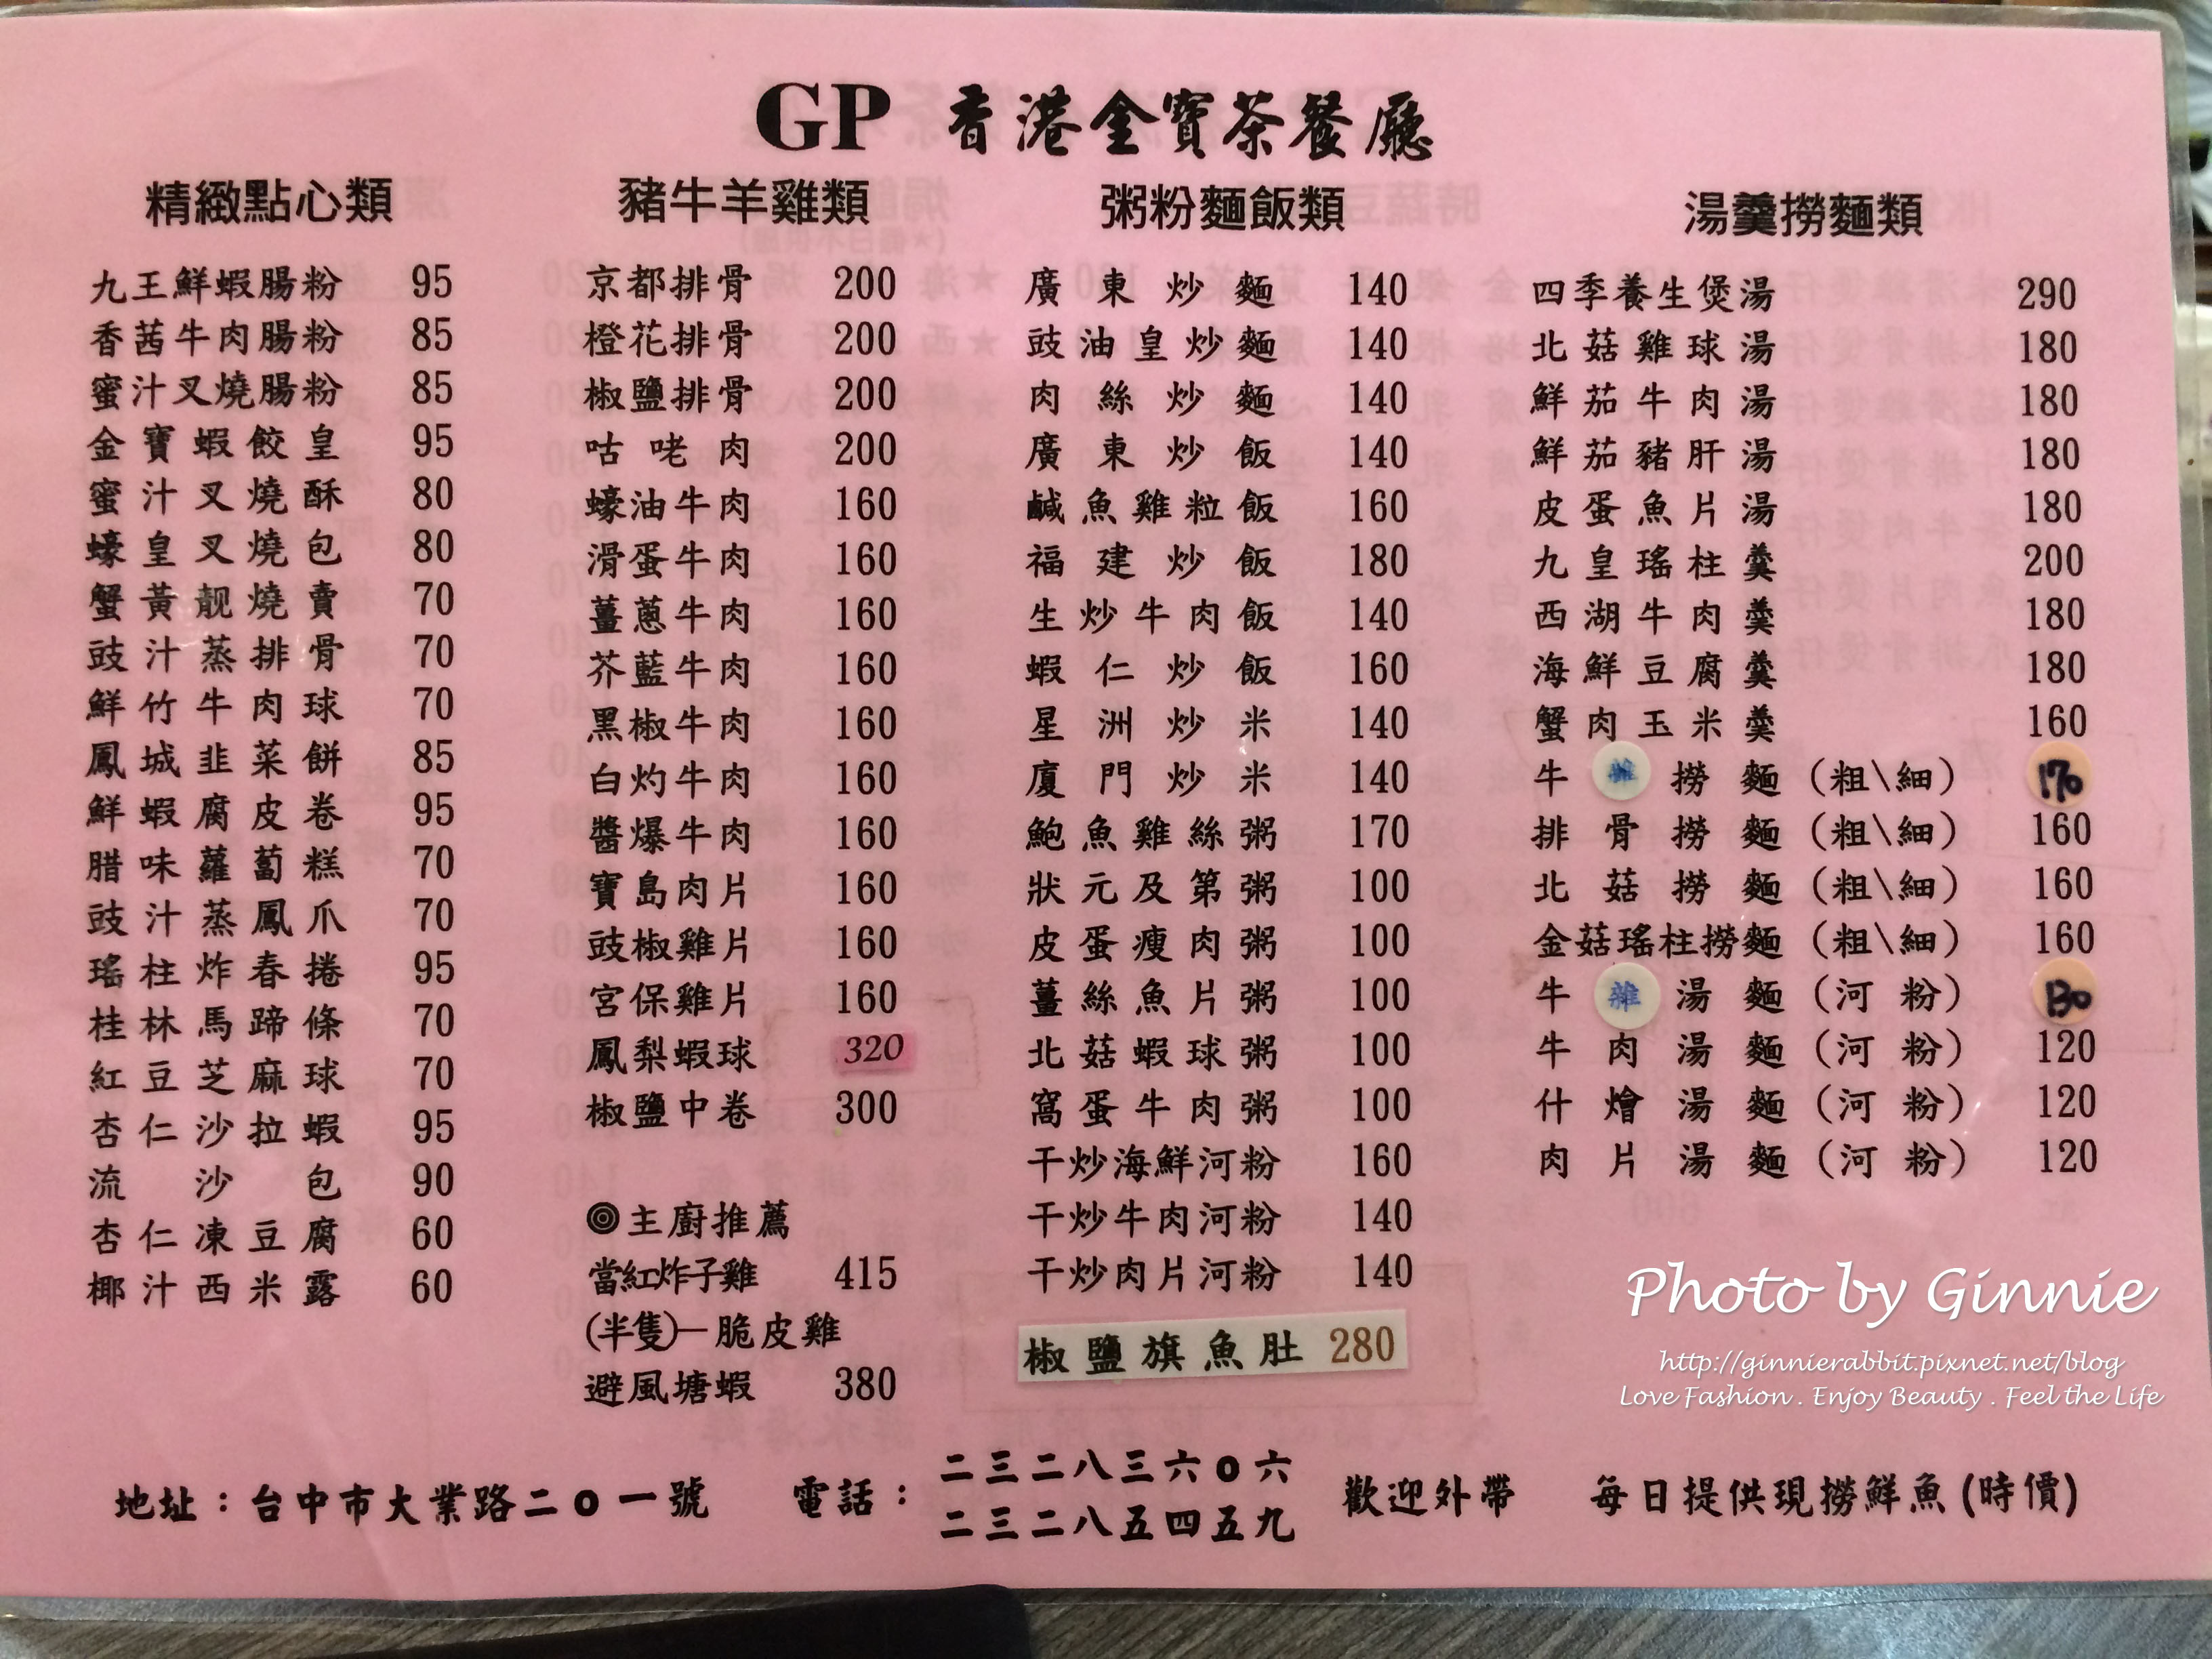 GP 香港金寶茶餐廳
精緻點心類
九王鮮蝦腸粉 95
香茜牛肉腸粉 85
蜜汁叉燒腸粉 85
金寶蝦餃皇 95
蜜汁叉燒酥 80
蠔皇叉燒包 80
蟹黃靚燒賣 70
豉汁蒸排骨 70
鮮竹牛肉球 70
鳳城韭菜餅 85
鮮蝦腐皮卷 95
腊味蘿蔔糕 70
豉汁蒸鳳爪 70
瑤柱炸春捲 95
桂林馬蹄條 70
紅豆芝麻球 70
杏仁沙拉蝦 95
流沙包 90
杏仁凍豆腐 60
椰汁西米露 60
豬牛羊雞類
京都排骨 200
橙花排骨 200
椒鹽排骨 200
咕咾肉 200
蠔油牛肉 160
滑蛋牛肉 160
薑蔥牛肉 160
芥藍牛肉 160
黑椒牛肉 160
白灼牛肉 160
醬爆牛肉 160
寶島肉片 160
豉椒雞片 160
宮保雞片 160
鳳梨蝦球 320
椒鹽中卷 300
◎主廚推薦
當紅炸子雞 415
(半隻)—脆皮雞
避風塘蝦 380
粥粉麵飯類
廣東炒麵 140
豉油皇炒麵 140
肉絲炒麵 140
廣東炒飯 140
鹹魚雞粒飯 160
福建炒飯 180
生炒牛肉飯 140
蝦仁炒飯 160
星洲炒米 140
廈門炒米 140
鮑魚雞絲粥 170
狀元及第粥 100
皮蛋瘦肉粥 100
薑絲魚片粥 100
北菇蝦球粥 100
窩蛋牛肉粥 100
干炒海鮮河粉 160
干炒牛肉河粉 140
干炒肉片河粉 140
椒鹽旗魚肚 280
湯羹撈麵類
四季養生煲湯 290
北菇雞球湯 180
鮮茄牛肉湯 180
鮮茄豬肝湯 180
皮蛋魚片湯 180
九皇瑤柱羹 200
西湖牛肉羹 180
海鮮豆腐羹 180
蟹肉玉米羹 160
牛雜撈麵(粗\細) 170
排骨撈麵(粗\細) 160
北菇撈麵(粗\細) 160
金菇瑤柱撈麵(粗\細) 160
牛雜湯麵(河粉) 130
牛肉湯麵(河粉) 120
什燴湯麵(河粉) 120
肉片湯麵(河粉) 120
Photo by Ginnie
http://ginnierabbit.pixnet.net/blog
Love Fashion . Enjoy Beauty . Feel the Life
地址：台中市大業路二o一號
電話：二三二八三六o六
二三二八五四五九
歡迎外帶
每日提供現撈鮮魚(時價)